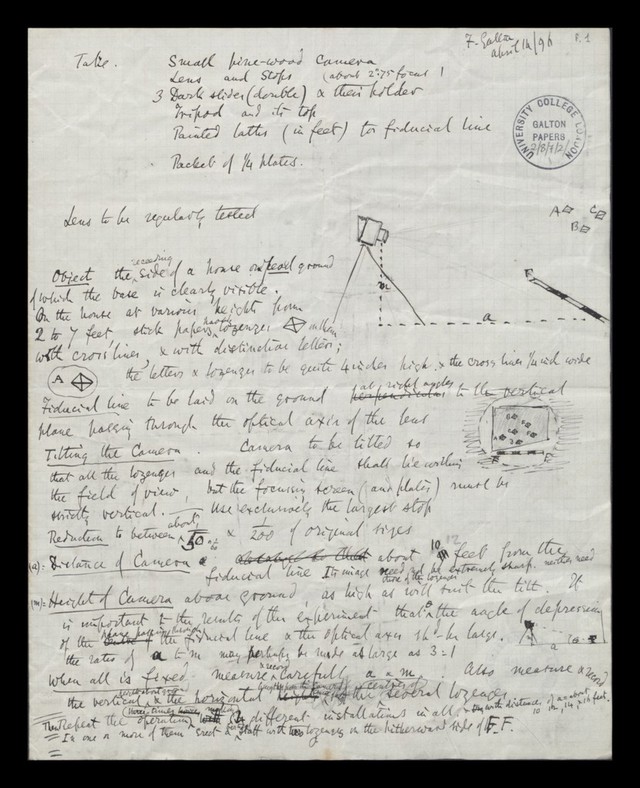 F. Galton P. 1
April 14/96
Take. Small pine-wood Camera
Lens and Stops (about 2".75 focus)
3 Dark slides (double) & their holder
Tripod and its top
Painted laths (in feet) for fiducial line
Packet of 1/4 plates.
UNIVERSITY COLLEGE LONDON
GALTON
PAPERS
Lens to be regularly tested
A C
B
m
a
Object the receding side of a house on ground
of which the base is clearly visible.
On the house at various heights from
2 to 7 feet, stick papers with lozenges
with cross lines, & with distinctive letters;
the letters & lozenges to be quite 4 inches high, & the cross lines wide
A
Fiducial line to be laid on the ground at right angles perpendicular to the vertical
plane passing through the optical axis of the lens
Tilting the Camera. Camera to be tilted so
that all the lozenges and the fiducial line shall lie within
the field of view, but the focusing screen (and plates) must be
strictly vertical. Use exclusively the largest stop
F F
Reduction to between about 1/50 & 1/200 of original sizes
(a) = Distance of Camera about 10 12 feet from the
fiducial line Its image need not be extremely sharp. neither need
those of the lozenges
(m) = Height of Camera above ground, as high as will suit the tilt. It
is important to the results of this experiment that the angle of depression
of the plane passing through the fiducial line & the optical axis shd. be large.
the ratio of a to m may perhaps be made as large as 3=1
When all is fixed measure & record carefully a & m. Also measure & record
the vertical & the horizontal the several lozenges
Then Repeat the operation different installations in all, say with distances, in a about
10 12, 14 & 16 feet.
In one or more of them erect a staff with two lozenges on the hitherward side of F.F.